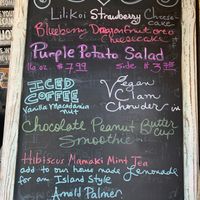 Lilikoi Strawberry Cheese-
cake
Blueberry Dragonfruit oreo
Cheesecake
Purple Potato Salad
16oz $7.99 Side $3.75
ICED
COFFEE
Vanilla Macadamia
nut
Vegan
Clam
Chowder
Chocolate Peanut Butter
Cup
Smoothie
Hibiscus Mamaki Mint Tea
add to our house made Lemonade
for an Island Style
Arnold Palmer